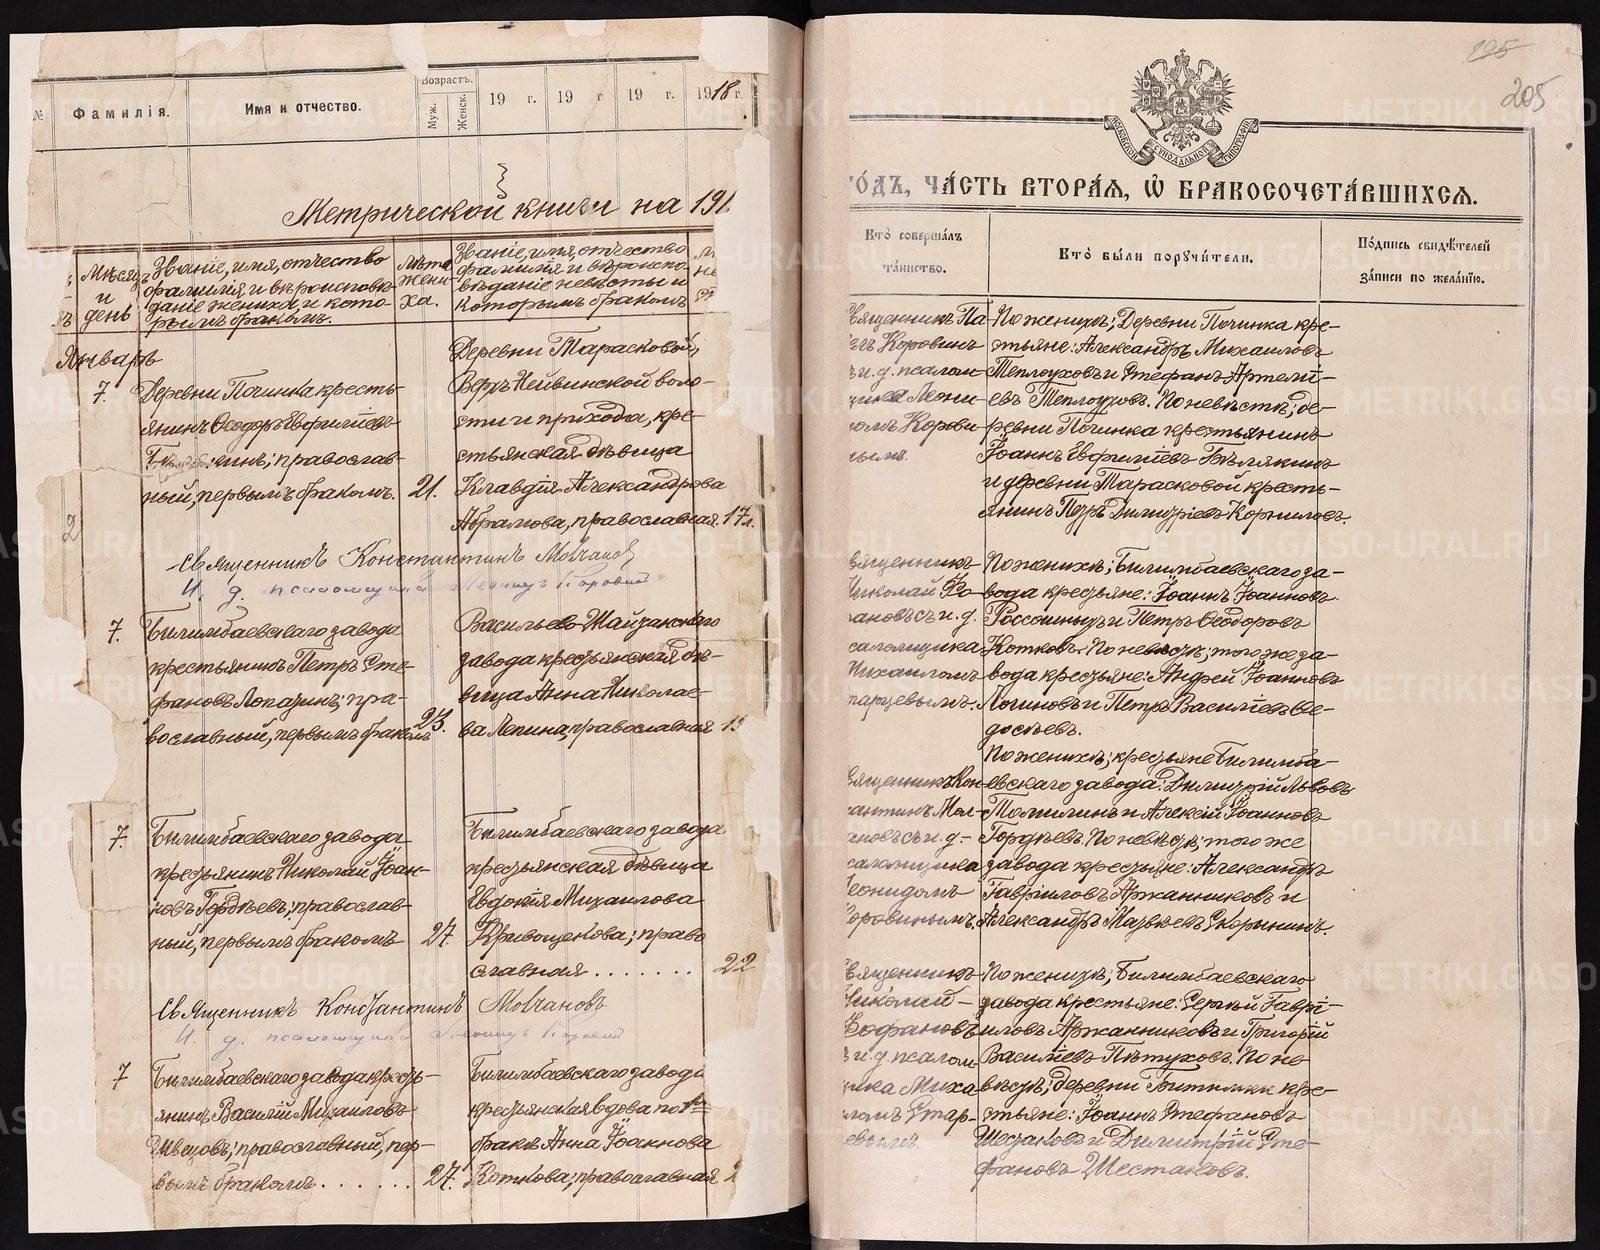 №
Фамилія.
Имя и отчество.
Возрастъ.
Муж.
Женск.
19 г.
19 г.
19 г.
1918 г.
Метрической книги на 191
Мѣсяцъ
и
день
Званіе, имя, отчество
фамилія и вѣроисповѣ-
даніе жениха, и кото-
рымъ бракомъ.
Лѣта
жени-
ха.
Званіе, имя, отчество
фамилія и вѣроиспо-
вѣданіе невѣсты и
которымъ бракомъ
Январь
7.
Деревни Починка кресть-
янинъ Ѳеодоръ Евфиміевъ
православ-
ный, первымъ бракомъ.
21.
Деревни Тарасковой,
Верхъ Нейвинской воло-
сти и прихода, кре-
стьянская дѣвица
Клавдія Александрова
Абрамова, православная.
17
Священникъ Константинъ Молчановъ
И. д. псаломщика Леонидъ Коровинъ
7.
Билимбаевскаго завода
крестьянинъ Петръ Сте-
фановъ Лопатинъ; пра-
вославный, первымъ бракомъ
23.
Васильево-Шайтанскаго
завода крестьянская дѣ-
вица Анна Николае-
ва Лепина, православная
7.
Билимбаевскаго завода
крестьянинъ Николай Іоан-
новъ Гордѣевъ; православ-
ный, первымъ бракомъ
27.
Билимбаевскаго завода
крестьянская дѣвица
Евдокія Михаилова
Кривощекова; право
славная.......
22
Священникъ Константинъ Молчановъ
И. д. псаломщика Леонидъ Коровинъ
7
Билимбаевскаго завода кресть-
янинъ Василій Михаиловъ
Швецовъ; православный, пер-
вымъ бракомъ.......
27.
Билимбаевскаго завода
крестьянская вдова по 1м
бракѣ Анна Іоаннова
Коткова; православная
195
205
МОСКОВСКОЙ СѴНОДАЛЬНОЙ ТИПОГРАФІИ
ГО́ДЪ, ЧА́СТЬ ВТОРА́Я, Ѡ҆ БРАКОСОЧЕТА́ВШИХСЯ.
Кто̀ соверша́лъ
та́инство.
Кто̀ бы́ли порꙋчи́тели.
По́дпись свидѣ́телей
за́писи по жела́нїю.
Священникъ Па-
Коровинъ
и. д. псалом-
щика Леони-
домъ Корови-
нымъ.
По женихѣ; Деревни Починка кре-
стьяне: Александръ Михаиловъ
Теплоуховъ и Стефанъ Артемі-
евъ Теплоуховъ. По невѣстѣ; де-
ревни Починка крестьянинъ
Іоаннъ Евфиміевъ Бѣлякинъ
и деревни Тарасковой кресть-
янинъ Петръ Димитріевъ Корниловъ.
Священникъ
Николай Фо-
ановъ съ и. д.
псаломщика
Михаиломъ
Старцевымъ.
По женихѣ; Билимбаевскаго за-
вода крестьяне: Іоаннъ Іоанновъ
Россошныхъ и Петръ Ѳеодоровъ
Котковъ. По невѣстѣ; того же за-
вода крестьяне: Андрей Іоанновъ
Логиновъ и Петръ Василіевъ Ѳе-
досѣевъ.
Священникъ Кон-
стантинъ Мол-
чановъ съ и. д.
псаломщика
Леонидомъ
Коровинымъ.
По женихѣ; крестьяне Билимба-
евскаго завода: Димитрій Львовъ
Томилинъ и Алексій Іоанновъ
Гордѣевъ. По невѣстѣ; того же
завода крестьяне: Александръ
Гавріиловъ Аржанниковъ и
Александръ Матвѣевъ Скорынинъ.
Священникъ
Николай
и. д. псалом
щика Миха
иломъ Стар-
цевымъ.
По женихѣ; Билимбаевскаго
завода крестьяне: Сергѣй Гаврі-
иловъ Аржанниковъ и Григорій
Василіевъ Пѣтуховъ. По не
вѣстѣ; деревни Битимки кре-
стьяне: Іоаннъ Стефановъ
Шестаковъ и Димитрій Сте-
фановъ Шестаковъ.
METRIKI.GASO-URAL.RU